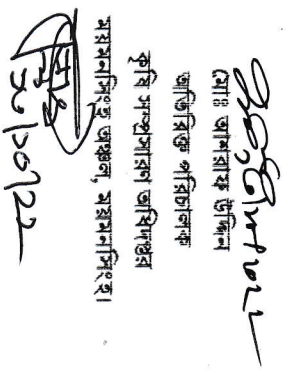 মোঃ আশরাফ উদ্দিন
অতিরিক্ত পরিচালক
কৃষি সম্প্রসারণ অধিদপ্তর
ময়মনসিংহ অঞ্চল, ময়মনসিংহ।